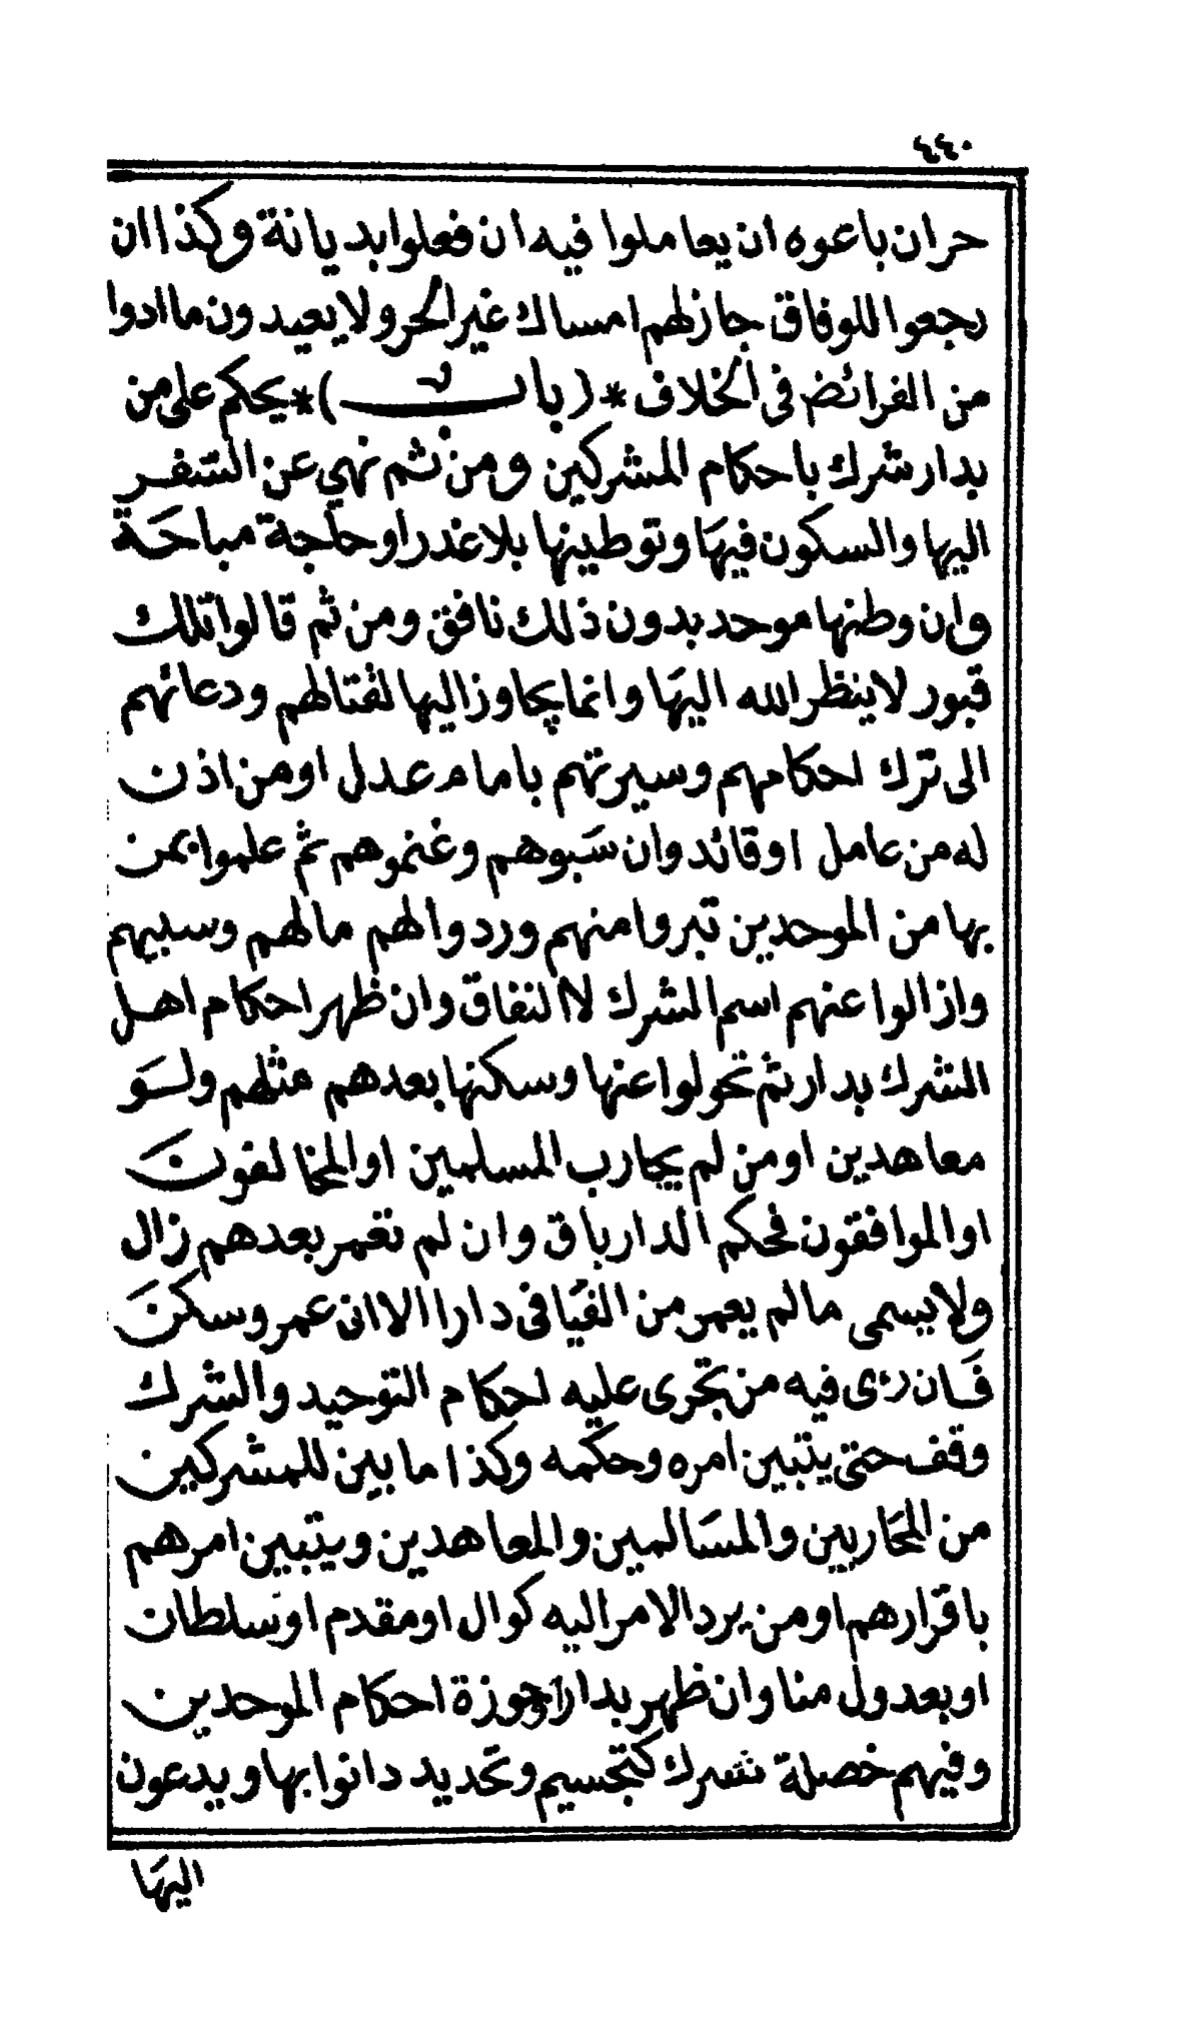 ٤٤٠
حر ان باعوه ان يعاملوا فيه ان فعلوا بديانة وكذا ان
رجعوا للوفاق جاز لهم امساك غير الحر ولا يعيدون ما ادوا
من الفرائض فى الخلاف *(باب)* يحكم على من
بدار شرك باحكام المشركين ومن ثم نهي عن السفر
اليها والسكون فيهَا وتوطينها بلا عذر او حاجة مباحَة
وان وطنها موحد بدون ذلك نافق ومن ثم قالوا تلك
قبور لا ينظر الله اليهَا وانما يجاوز اليها لقتالهم ودعائهم
الى ترك احكامهم وسيرتهم بامام عدل او من اذن
له من عامل او قائد وان سَبوهم وغنموهم ثم علموا بمن
بها من الموحدين تبروا منهم وردوا لهم مالهم وسبيهم
وازالوا عنهم اسم الشرك لا النفاق وان ظهر احكام اهل
الشرك بدار ثم تحولوا عنها وسكنها بعدهم مثلهم ولَو
معاهدين او من لم يحارب المسلمين او المخالفونَ
او الموافقون فحكم الدار باق وان لم تعمر بعدهم زال
ولا يسمى ما لم يعمر من الفيَافى دارا الا ان عمر وسكنَ
فَان رءى فيه من تجرى عليه احكام التوحيد والشرك
وقف حتى يتبين امره وحكمه وكذا ما بين للمشركين
من المحَاربين والمسَالمين والمعاهدين ويتبين امرهم
باقرارهم او من يرد الامر اليه كوال او مقدم او سَلطان
او بعدول منا وان ظهر بدار وجوزة احكام الموحدين
وفيهم خصلة شرك كتجسيم وتحديد دانوا بها ويدعون
اليهَا